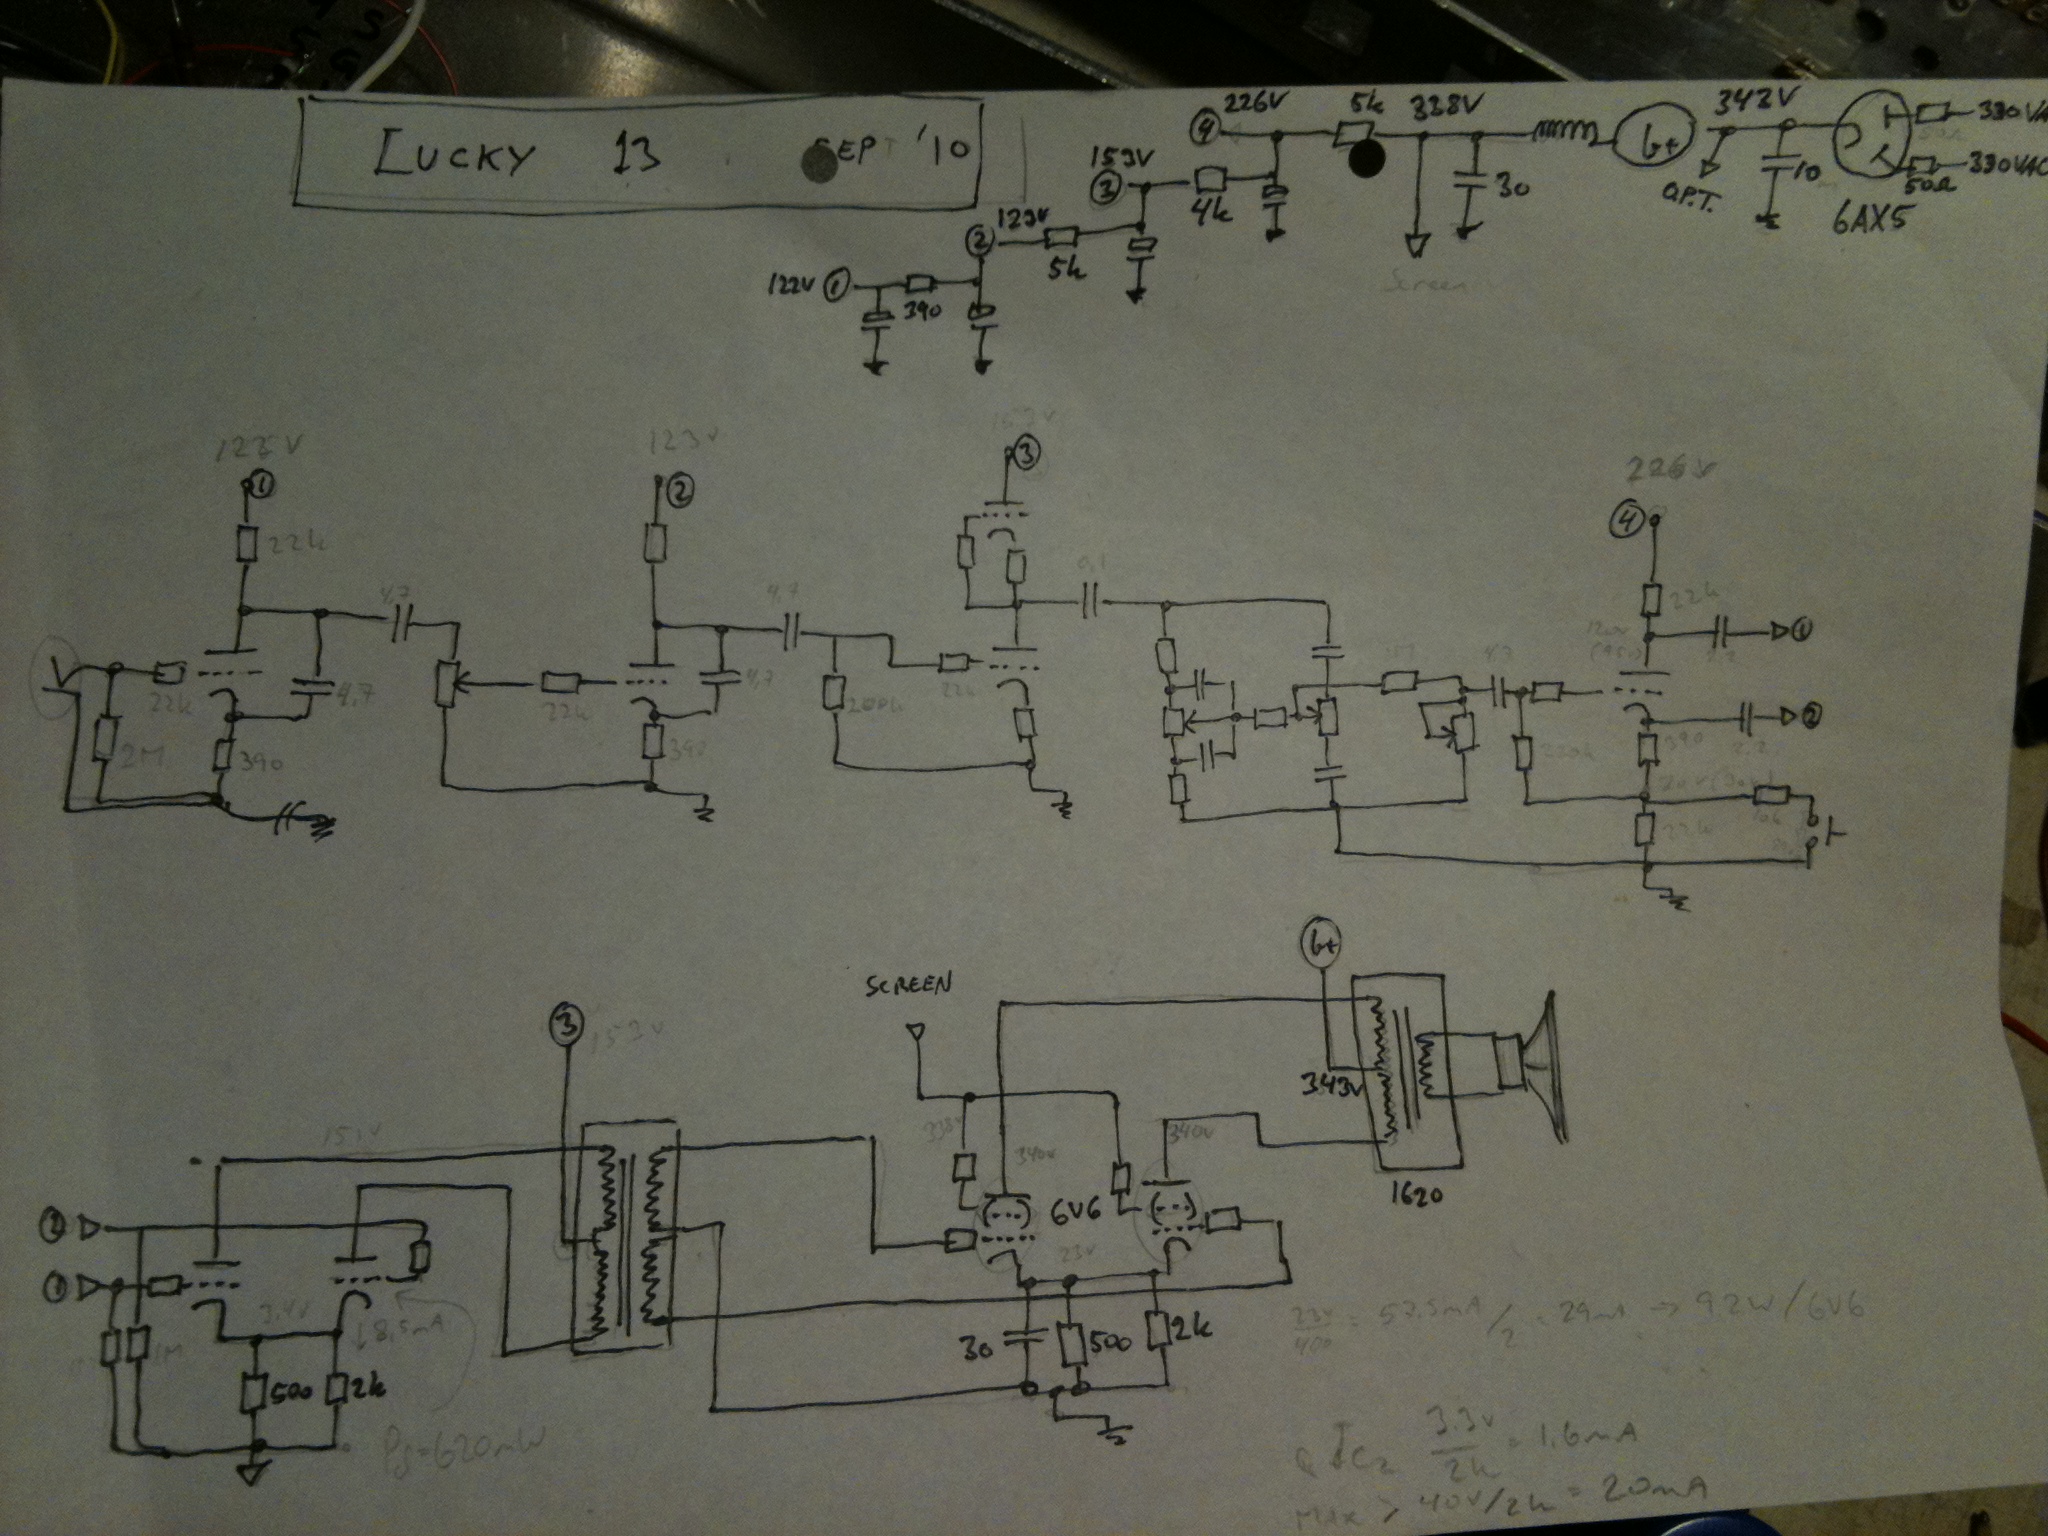 LUCKY 13 SEPT '10
226V
5k
338V
342V
330VAC
4
b+
153V
3
4k
30
O.P.T.
10
50Ω
330VAC
6AX5
123V
2
5k
Screen
122V
1
390
123V
3
1
2
226V
4
22k
4,7
4,7
0,1
22k
1
22k
4,7
22k
4,7
22k
2M
390
390
200k
220k
390
2
22k
SCREEN
b+
3
153V
343V
338V
340V
340V
1620
2
6V6
23V
1
3,4V
8,5mA
30
500
2k
1M
500
2k
23V/400 = 57.5mA/2 = 29mA → 9.2W/6V6
Pd=620mW
3.3V/2k = 1.6mA
MAX > 40V/2k = 20mA